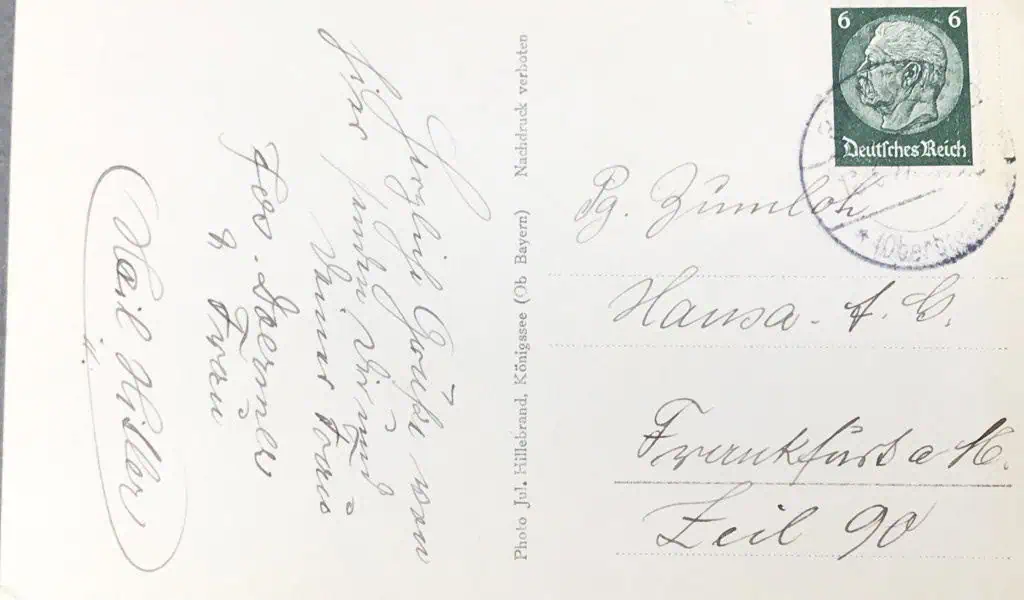 6 6
Deutsches Reich
Pg. Zumloh
Hansa - A. G.
Frankfurt a M.
Zeil 90
Photo Jul. Hillebrand, Königssee (Ob Bayern) Nachdruck verboten
Herzliche Grüße von
hier senden Dir und
Deiner Frau
Jos. Doerner
& Frau
Heil Hitler